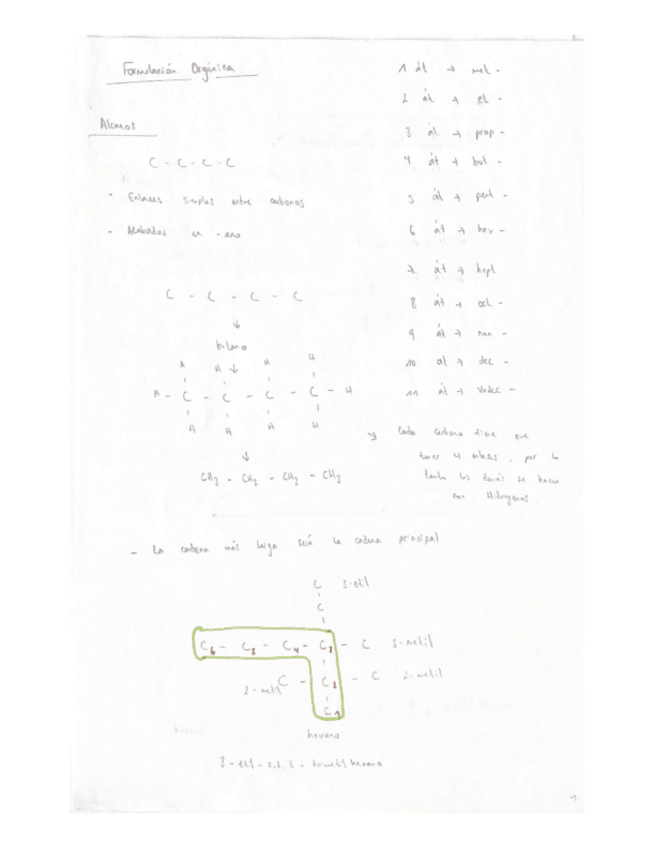 Formulación Orgánica
Alcanos
C - C - C - C
- Enlaces simples entre carbonos
- Acabados en - ano
C - C - C - C
↓
butano
H H H H
H - C - C - C - C - H
H H H H
↓
CH3 - CH2 - CH2 - CH3
1 át → met -
2 át → et -
3 át → prop -
4 át → but -
5 át → pent -
6 át → hex -
7 át → hept
8 át → oct -
9 át → non -
10 át → dec -
11 át → undec -
Cada carbono tiene que
tener 4 enlaces, por lo
tanto los demás se hacen
con Hidrógenos.
- La cadena más larga será la cadena principal
C 3-etil
C
C6 - C5 - C4 - C3 - C 3-metil
2-metil C - C2 - C 2-metil
C1
hexano
3-etil-2,2,3-trimetil hexano
1